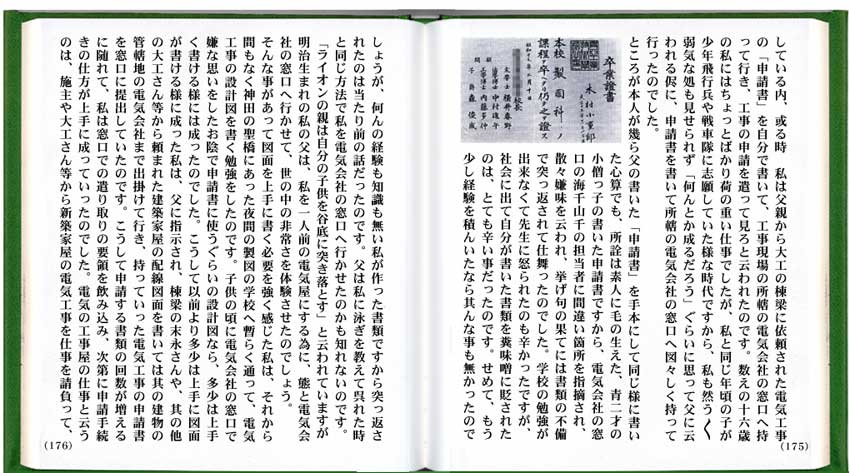 している内、或る時　私は父親から大工の棟梁に依頼された電気工事
の「申請書」を自分で書いて、工事現場の所轄の電気会社の窓口へ持
って行き、工事の申請を遣って見ろと云われたのです。数えの十六歳
の私にはちょっとばかり荷の重い仕事でしたが、私と同じ年頃の子が
少年飛行兵や戦車隊に志願していた様な時代ですから、私も然うく
弱気な処も見せられず「何んとか成るだろう」ぐらいに思って父に云
われる侭に、申請書を書いて所轄の電気会社の窓口へ図々しく持って
行ったのでした。
ところが本人が幾ら父の書いた「申請書」を手本にして同じ様に書い
た心算でも、所詮は素人に毛の生えた、青二才の
小僧っ子の書いた申請書ですから、電気会社の窓
口の海千山千の担当者に間違い箇所を指摘され、
散々嫌味を云われ、挙げ句の果てには書類の不備
で突っ返されて仕舞ったのでした。学校の勉強が
出来なくて先生に怒られたのも辛かったですが、
社会に出て自分が書いた書類を糞味噌に貶された
のは、とても辛い事だったのです。せめて、もう
少し経験を積んいたなら其んな事も無かったので
卒業證書
木村小重郎
本校製圖科ノ
課程ヲ卒ヘ仍テ之ヲ證ス
(175)
しょうが、何んの経験も知識も無い私が作った書類ですから突っ返さ
れたのは当たり前の話だったのです。父は私に泳ぎを教えて呉れた時
と同じ方法で私を電気会社の窓口へ行かせたのかも知れないのです。
「ライオンの親は自分の子供を谷底に突き落とす」と云われていますが
明治生まれの私の父は、私を一人前の電気屋にする為に、態と電気会
社の窓口へ行かせて、世の中の非常さを体験させたのでしょう。
そんな事があって図面を上手に書く必要を強く感じた私は、それから
間もなく神田の聖橋にあった夜間の製図の学校へ暫らく通って、電気
工事の設計図を書く勉強をしたのです。子供の頃に電気会社の窓口で
嫌な思いをしたお陰で申請書に使うぐらいの設計図なら、多少は上手
く書ける様には成ったのでした。こうして以前より多少は上手に図面
が書ける様に成った私は、父に指示され、棟梁の末永さんや、其の他
の大工さん等から頼まれた建築家屋の配線図面を書いては其の建物の
管轄地の電気会社まで出掛けて行き、持っていった電気工事の申請書
を窓口に提出していたのです。こうして申請する書類の回数が増える
に随れて、私は窓口での遣り取りの要領を飲み込み、次第に申請手続
きの仕方が上手に成っていったのでした。電気の工事屋の仕事と云う
のは、施主や大工さん等から新築家屋の電気工事を仕事を請負って、
(176)